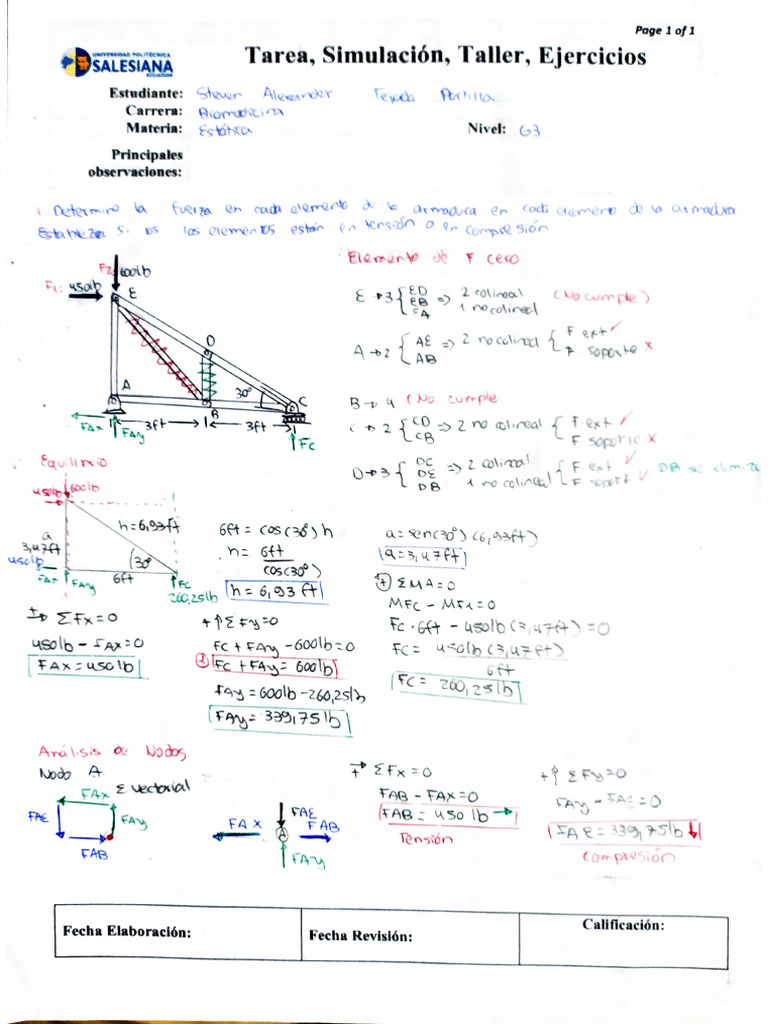 Page 1 of 1
UNIVERSIDAD POLITÉCNICA
SALESIANA
ECUADOR
Tarea, Simulación, Taller, Ejercicios
Estudiante: Steven Alexander Tejada Portilla
Carrera: Biomedicina
Materia: Estática Nivel: G3
Principales
observaciones:
1 Determine la fuerza en cada elemento de la armadura en cada elemento de la armadura
Establezca si los los elementos están en tensión o en compresión
Elemento de F cero
F2 600lb
F1: 450lb E
D
A 30° C
B
FAx FAy 3ft 3ft FC
E → 3 { ED EB EA => 2 colineal 1 no colineal (No cumple)
A → 2 { AE AB => 2 no colineal { F ext ✓ F soporte x
B → 4 (No cumple
C → 2 { CD CB => 2 no colineal { F ext ✓ F soporte x
D → 3 { DC DE DB => 2 colineal 1 no colineal { F ext ✓ F soport ✓ DB se elimi
Equilibrio
450lb 600lb
h=6,93ft
a
3,47ft
450lb 30°
FAx FAy 6ft FC
260,25lb
6ft = cos(30°) h
h = 6ft / cos(30°)
h = 6,93 ft
a = sen(30°) (6,93ft)
a = 3,47ft
+→ ΣFx=0
450lb - FAx=0
FAx = 450lb
+↑ ΣFy=0
FC + FAy - 600lb=0
FC + FAy = 600lb
FAy = 600lb - 260,25lb
FAy = 339,75lb
+ ΣMA=0
MFC - MF1=0
FC · 6ft - 450lb (3,47ft) = 0
FC = 450lb (3,47ft) / 6ft
FC = 260,25lb
Análisis de Nodos
Nodo A
Σ vectorial
FAx
FAE FAy
FAB
FAE
FAx A FAB
FAy
+→ ΣFx=0
FAB - FAx=0
FAB = 450 lb →
Tensión
+↑ ΣFy=0
FAy - FAE=0
FAE = 339,75lb ↓
Compresión
Fecha Elaboración: Fecha Revisión: Calificación: